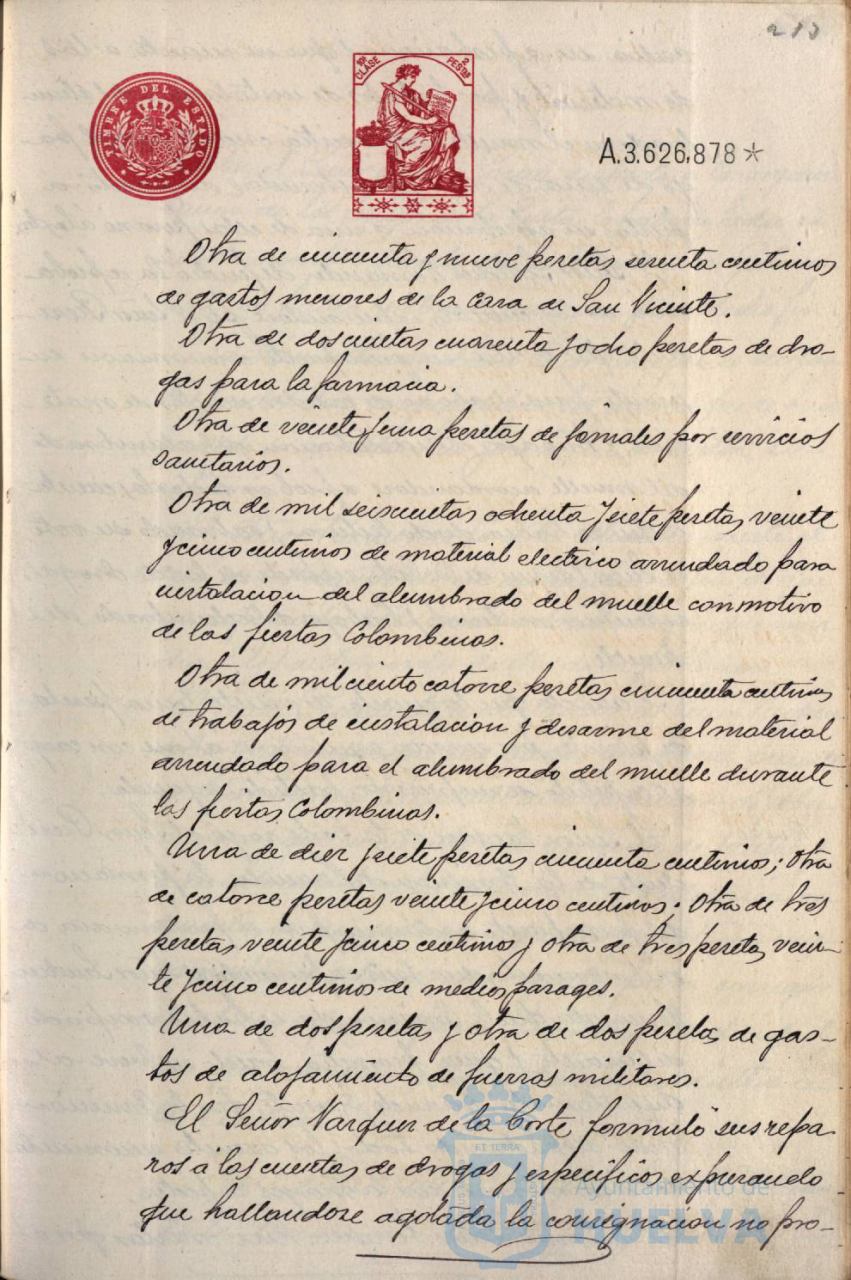 213
TIMBRE DEL ESTADO
10ª CLASE 2 PESTAS
A.3.626,878*
Otra de cincuenta y nueve pesetas sesenta centimos
de gastos menores de la Casa de San Vicente.
Otra de doscientas cuarenta y ocho pesetas de dro-
gas para la farmacia.
Otra de veinte y una pesetas de jornales por servicios
sanitarios.
Otra de mil seiscientas ochenta y siete pesetas veinte
y cinco centimos de material electrico arrendado para
instalacion del alumbrado del muelle con motivo
de las fiestas Colombinas.
Otra de mil ciento catorce pesetas cincuenta centimos
de trabajos de instalacion y desarme del material
arrendado para el alumbrado del muelle durante
las fiestas Colombinas.
Una de diez y siete pesetas cincuenta centimos; Otra
de catorce pesetas veinte y cinco centimos; Otra de tres
pesetas veinte y cinco centimos y otra de tres pesetas vein-
te y cinco centimos de medios pasages.
Una de dos pesetas y otra de dos pesetas de gas-
tos de alojamiento de fuerzas militares.
El Señor Vazquez de la Corte formuló sus repa-
ros á las cuentas de drogas y especificos expresando
que hallandose agotada la consignacion no pro-
ET TERRA
Ayuntamiento de
HUELVA